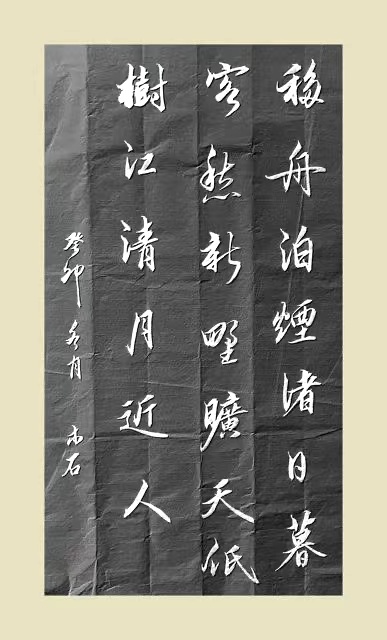 移舟泊煙渚日暮
客愁新野曠天低
樹江清月近人
癸卯冬月 木石